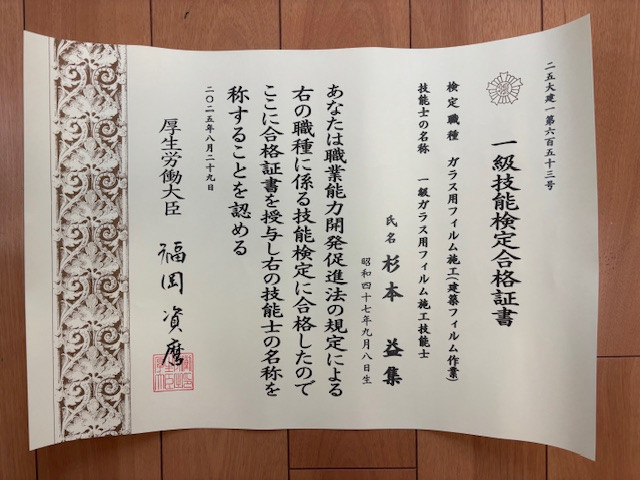 二五大建一第六百五十三号
一級技能検定合格証書
検定職種 ガラス用フィルム施工(建築フィルム作業)
技能士の名称 一級ガラス用フィルム施工技能士
氏名 杉本 益集
昭和四十七年九月八日生
あなたは職業能力開発促進法の規定による
右の職種に係る技能検定に合格したので
ここに合格証書を授与し右の技能士の名称を
称することを認める
二〇二五年八月二十九日
厚生労働大臣 福岡資麿